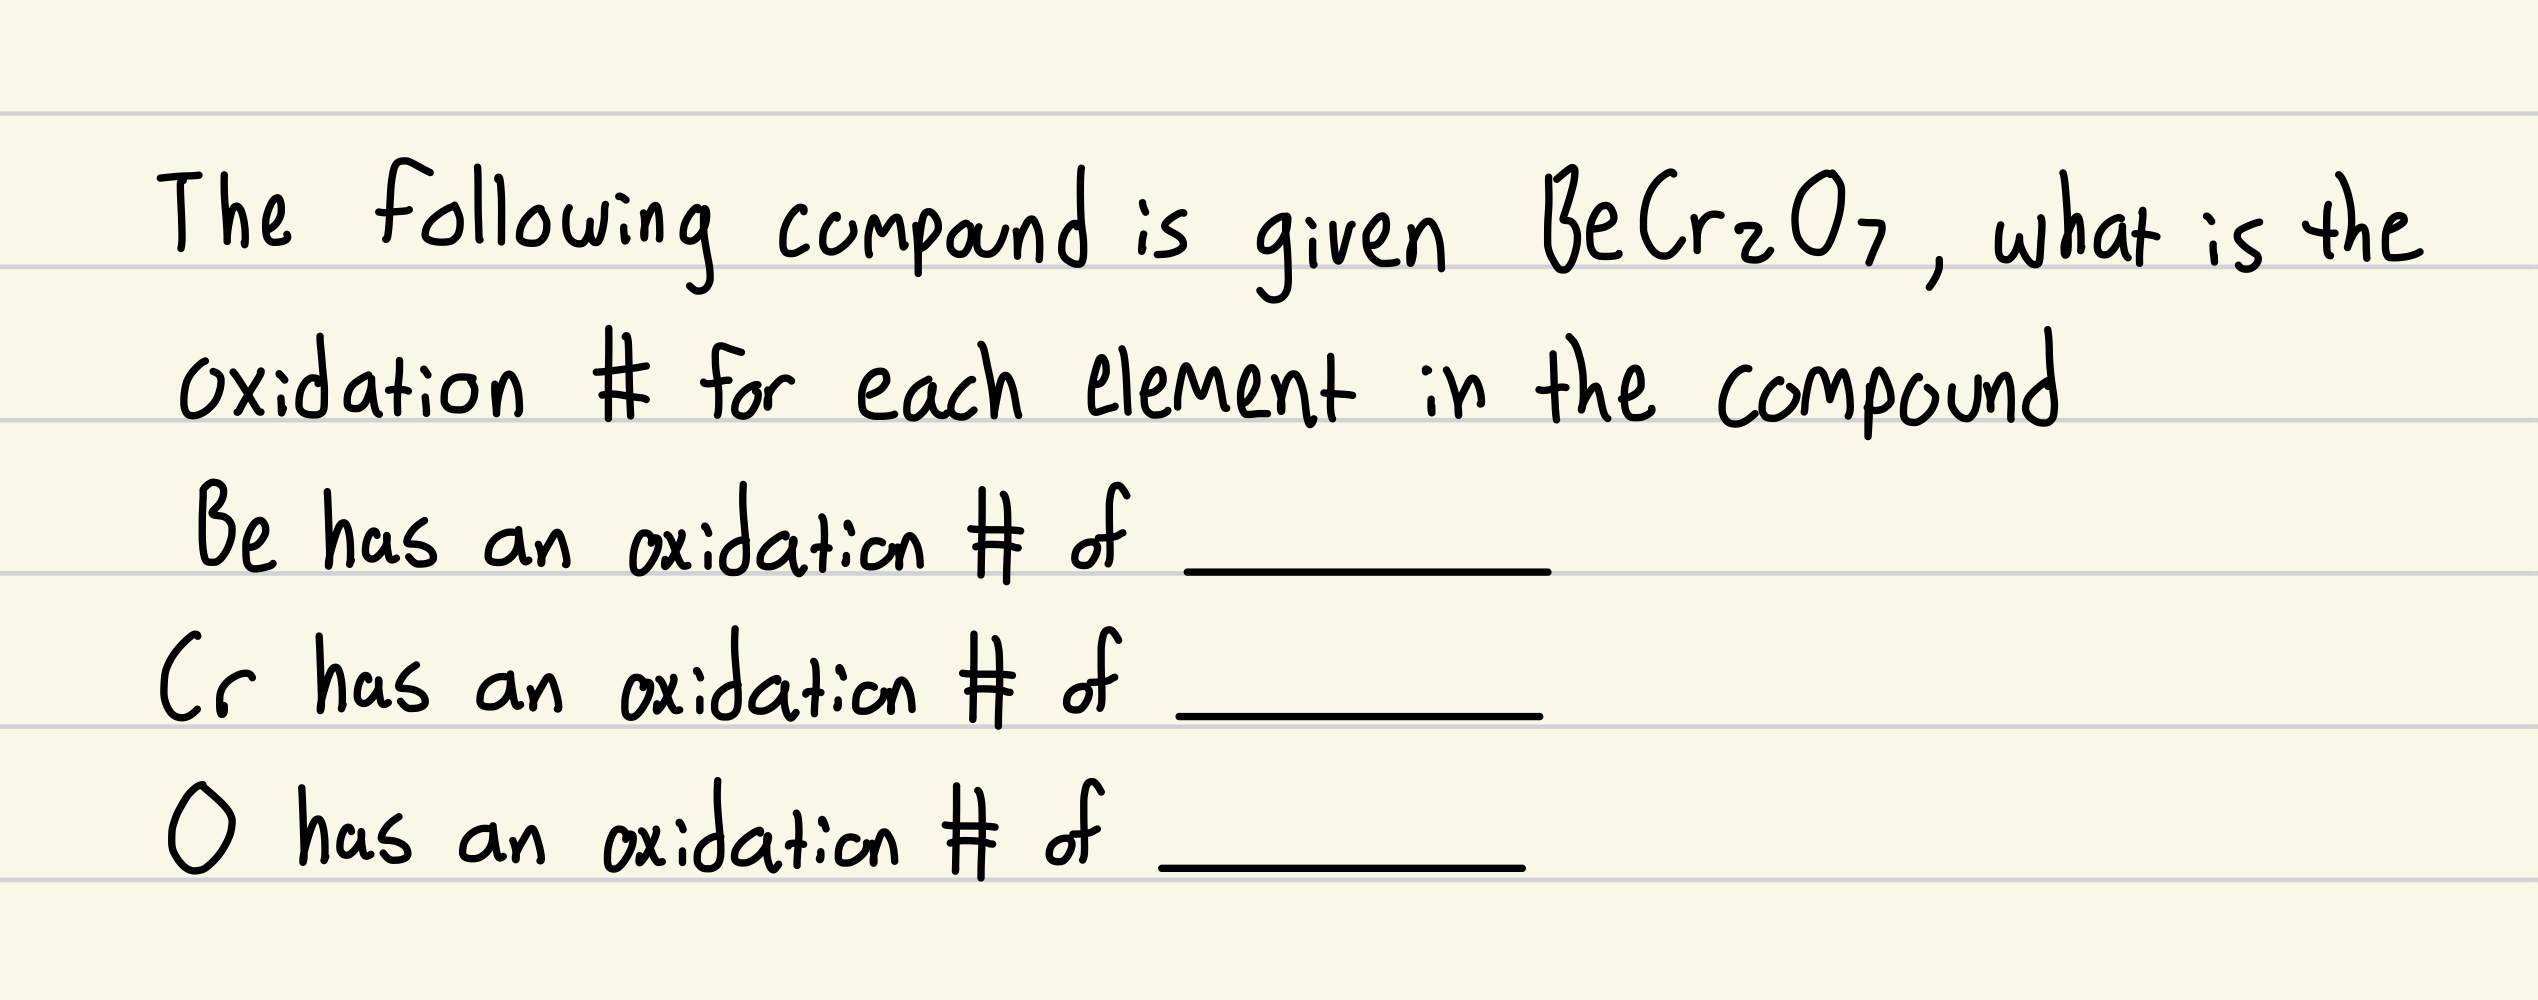 The following compound is given BeCr₂O₇, what is the
oxidation # for each element in the compound
Be has an oxidation # of ________
Cr has an oxidation # of ________
O has an oxidation # of ________